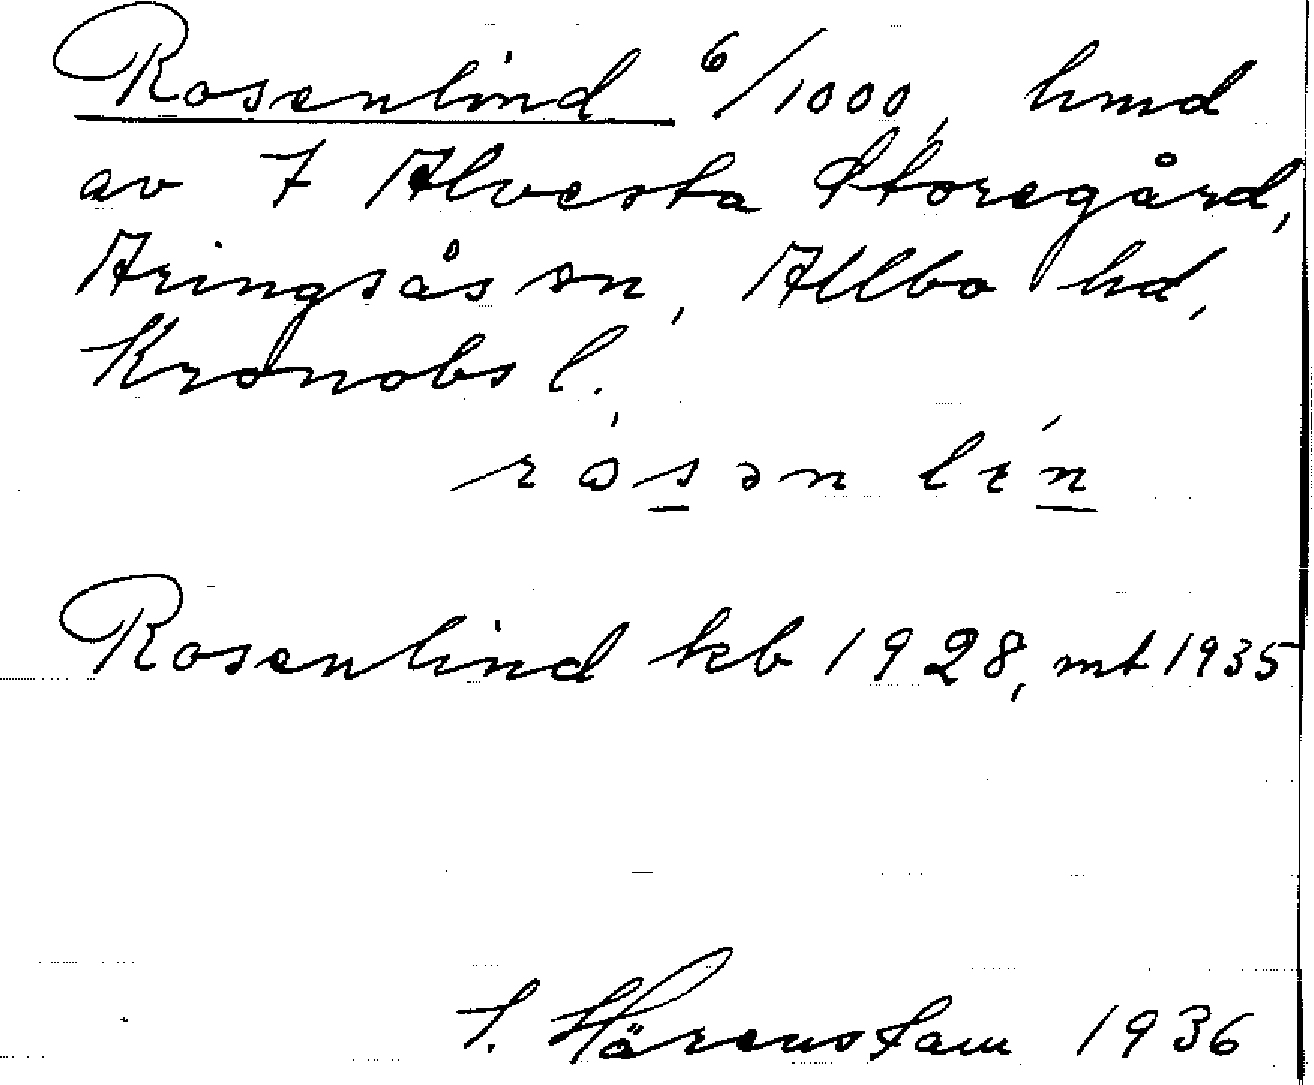 Rosenlind 6/1000, hmd
av 7 Alvesta Storegård,
Aringsås sn, Allbo hd,
Kronobs l.
ró̱sən lín
Rosenlind kb 1928, mt 1935
F. Härenstam 1936